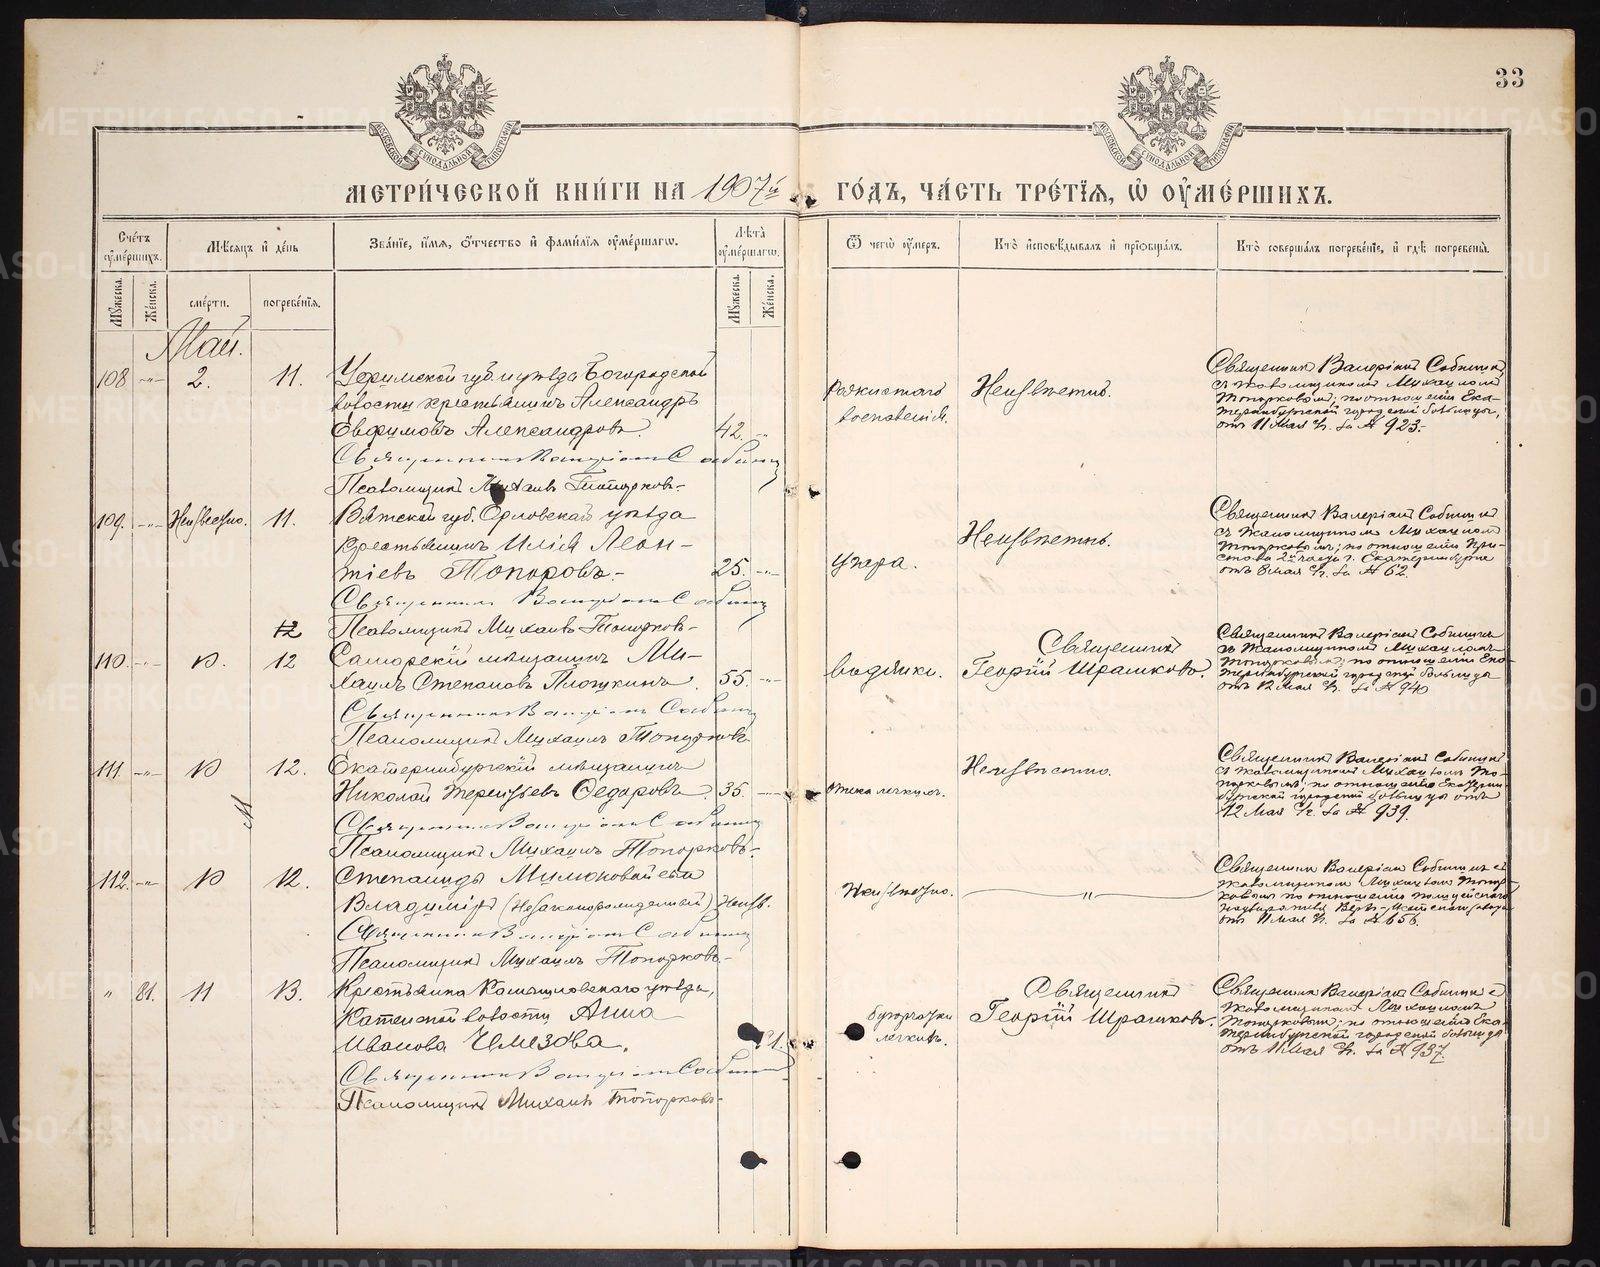 33
МЕТРИ́ЧЕСКОЙ КНИ́ГИ НА 1907й ГО́ДЪ, ЧА́СТЬ ТРЕ́ТІѦ, Ѡ҆ ОУ҆МЕ́РШИХЪ.
Сче́тъ оу҆ме́ршихъ.
Мѣ́сѧцъ и҆ де́нь
Зва́нїе, и҆́мѧ, ѻ҆́тчество и҆ фами́лїѧ оу҆ме́ршагѡ.
Лѣ́та оу҆ме́ршагѡ.
Ѿ чегѡ̀ оу҆́меръ.
Кто̀ и҆сповѣ́дывалъ и҆ прїѡбща́лъ.
Кто̀ соверша́лъ погребе́нїе, и҆ гдѣ̀ погребены̀.
Мꙋ́жеска.
Же́нска.
сме́рти.
погребе́нїѧ.
Мꙋ́жеска.
Же́нска.
Май.
108 -"- 2. 11.
Уфимской губ. и уѣзда Богородской
волости крестьянинъ Александръ
Евфимовъ Александровъ. 42. -"-
Священникъ Валеріанъ Собинин
Псаломщикъ Михаилъ Топорковъ.
Неизвѣстно.
Священникъ Валеріан Собинин
съ псаломщикомъ Михаиломъ
Топорковымъ; по отношенію Ека-
теринбургской городской больницы,
отъ 11 Мая за № 923.
109. -"- Неизвестно. 11.
Вятской губ. Орловскаго уѣзда
крестьянинъ Илія Леон-
тіевъ Топоровъ. 25. -"-
Священникъ Валеріан Собинин
Псаломщикъ Михаилъ Топорковъ
угара.
Неизвѣстно.
Священник Валеріан Собинин
съ псаломщикомъ Михаиломъ
Топорковымъ; по отношенію При-
става 2й части г. Екатеринбурга
отъ 8 мая за № 62.
12
110. -"- 12
Самарскій мѣщанинъ Ми-
хаилъ Степановъ Плоткинъ. 55. -"-
Священник Валеріан Собинин
Псаломщикъ Михаилъ Топорковъ
водянки.
Священникъ
Георгій Шрамковъ.
Священникъ Валеріан Собининъ
съ псаломщикомъ Михаиломъ
Топорковымъ; по отношенію Ека-
теринбургской городской больницы
отъ 12 Мая за № 940
111. -"- 12.
Екатеринбургскій мѣщанинъ
Николай Терентьевъ Ѳедоровъ. 35.
Священник Валеріан Собинин
Псаломщикъ Михаилъ Топорковъ.
отека легкихъ.
Неизвѣстно.
Священникъ Валеріан Собинин
съ псаломщикомъ Михаиломъ То-
порковымъ; по отношенію Екатерин-
бургской городской больницы отъ
12 Мая за № 939.
112. -"- 12.
Степаниды Милюковой сын
Владиміръ (Незаконорожденный) Неизв.
Священник Валеріан Собинин
Псаломщикъ Михаилъ Топорковъ.
Неизвѣстно.
"
Священник Валеріан Собинин съ
псаломщиком Михаилом Топор-
ковым по отношенію полицейскаго
отъ 11 Мая за № 656.
" 81. 11 13.
Крестьянка Камышловскаго уѣзда,
волости Анна
Иванова
Священник Валеріан Собинин
Псаломщикъ Михаилъ Топорковъ
бугорчатки
легкихъ.
Священникъ
Георгій Шрамковъ.
Священник Валеріан Собинин съ
псаломщикомъ Михаиломъ
Топорковымъ; по отношенію Ека-
теринбургской городской больницы
отъ 11 Мая за № 937.